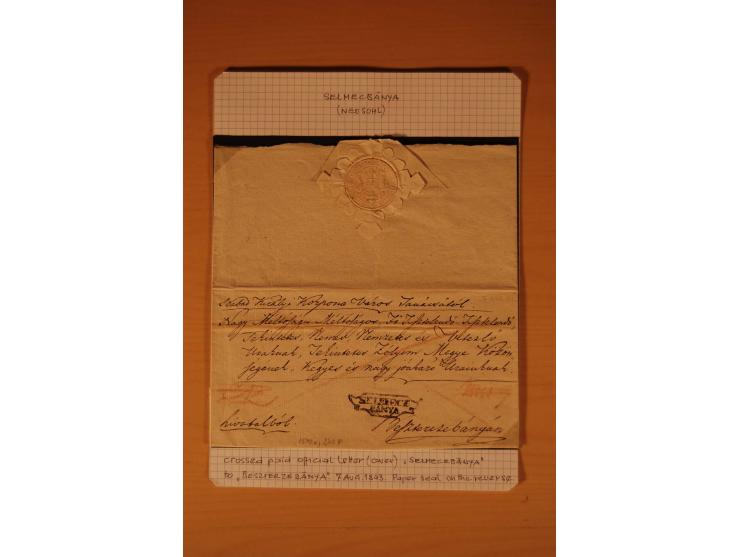 SELMECBÁNYA
(NEUSOHL)
Szabad Királyi Korpona Város Tanácsától.
Nagy Méltóságu Méltóságos, Fő Tisztelendő Tisztelendő
Tekintetes, Nemes, Nemzetes és Vitézlő
Uraknak, Tekintetes Zólyom Megye Közön
ségének. Kegyes és nagy jóakaró Urainknak.
SELMECZ
BÁNYA
hivatalból.
Beszterczebányán
crossed paid official letter (cover) „SELMECBÁNYA"
to „BESZTERZEBÁNYA" 7. AUG. 1843. Paper seal on the reverse.